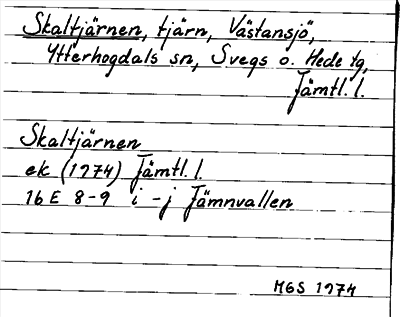 Skaltjärnen, tjärn, Västansjö,
Ytterhogdals sn, Svegs o. Hede tg,
Jämtl. l.
Skaltjärnen
ek (1974) Jämtl. l.
16 E 8-9 i-j Jämnvallen
MGS 1974